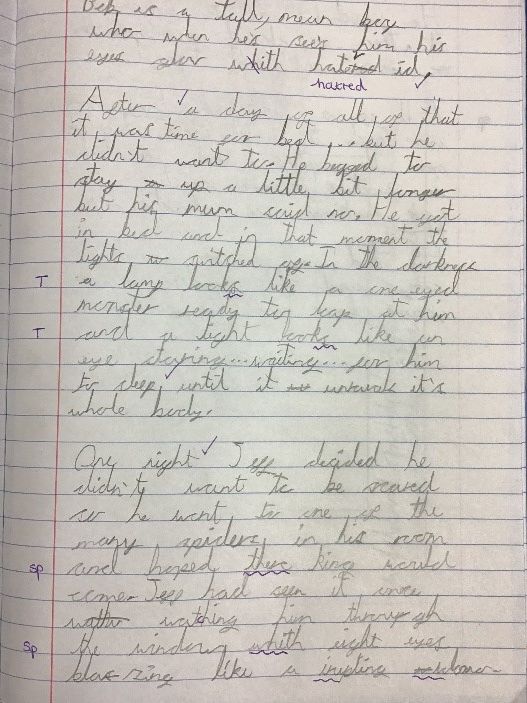 is a tall, mean boy
who when he's sees him his
eyes glow with hatered id,
hatred
After a day of all of that
it was time for bed ... but he
didn't want to. He begged to
stay up a little bit longer
but his mum said no. He got
in bed and in that moment the
lights switched off. In the darkness
T a lamp looks like a one eyed
monster ready to leap at him
T and a light looks like an
eye staring...waiting... for him
to sleep, until it it's
whole body.
One night Jeff decided he
didn't want to be scared
so he went to one of the
many spiders in his room
sp and hoped there king would
come. Jeff had seen it once
watching him through
sp the window whith eight eyes
blazing like a